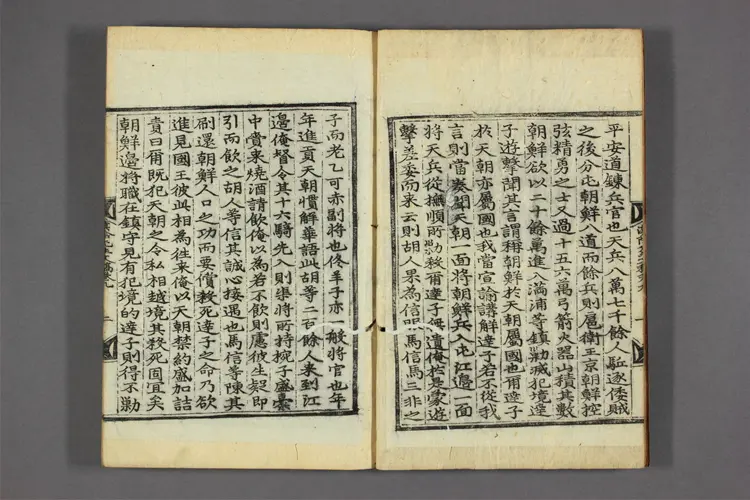 平安道鍊兵官也天兵八萬七千餘人駈逐倭賊
之後分屯朝鮮八道而餘兵則扈衛王京朝鮮控
弦精勇之士又過十五六萬弓箭火器山積其數
朝鮮欲以二十餘萬進入滿浦等鎭勦滅犯境㺚
子遊擊聞其言謂稱朝鮮於天朝屬國也爾㺚子
於天朝亦屬國也我當宣諭講解㺚子若不從我
言則當奏聞天朝一面將朝鮮兵入屯江邊一面
將天兵從撫順所勦殺爾㺚子無遺俺於是蒙遊
擊差委而來云則胡人果爲信聞馬信馬三非之
子而老乙可赤副將也佟羊子亦一般將官也年
年進貢天朝慣解華語此胡等二百餘人來到江
邊俺督令其十六騎先入則渠將所持椀子盛囊
中賫來燒酒請飮俺以爲若不飮則慮彼生疑卽
引而飮之胡人等信其誠心接遇也馬信等陳其
刷還朝鮮人口之功而要償殺死㺚子之命乃欲
進見國王彼此相爲往來俺以天朝禁約盛加詰
責曰爾旣犯天朝之令私相越境其殺死固宜矣
朝鮮邊將職在鎭守見有犯境的㺚子則得不勦